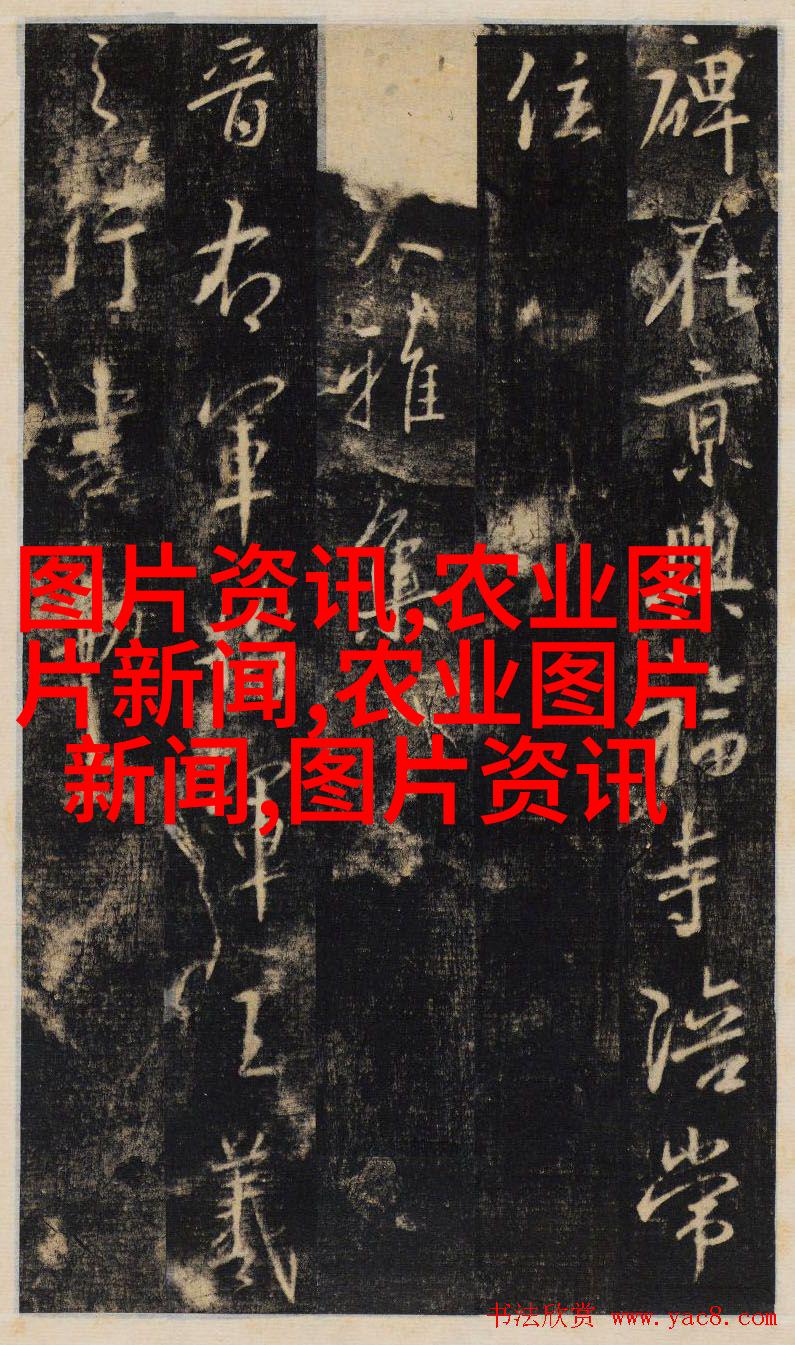 碑在京興福寺陪常
住
大雅集
晉右軍將軍王羲
之行書勒
图片资讯,农业图
片新闻,农业图片
新闻,图片资讯
书法欣赏 www.yac8.com